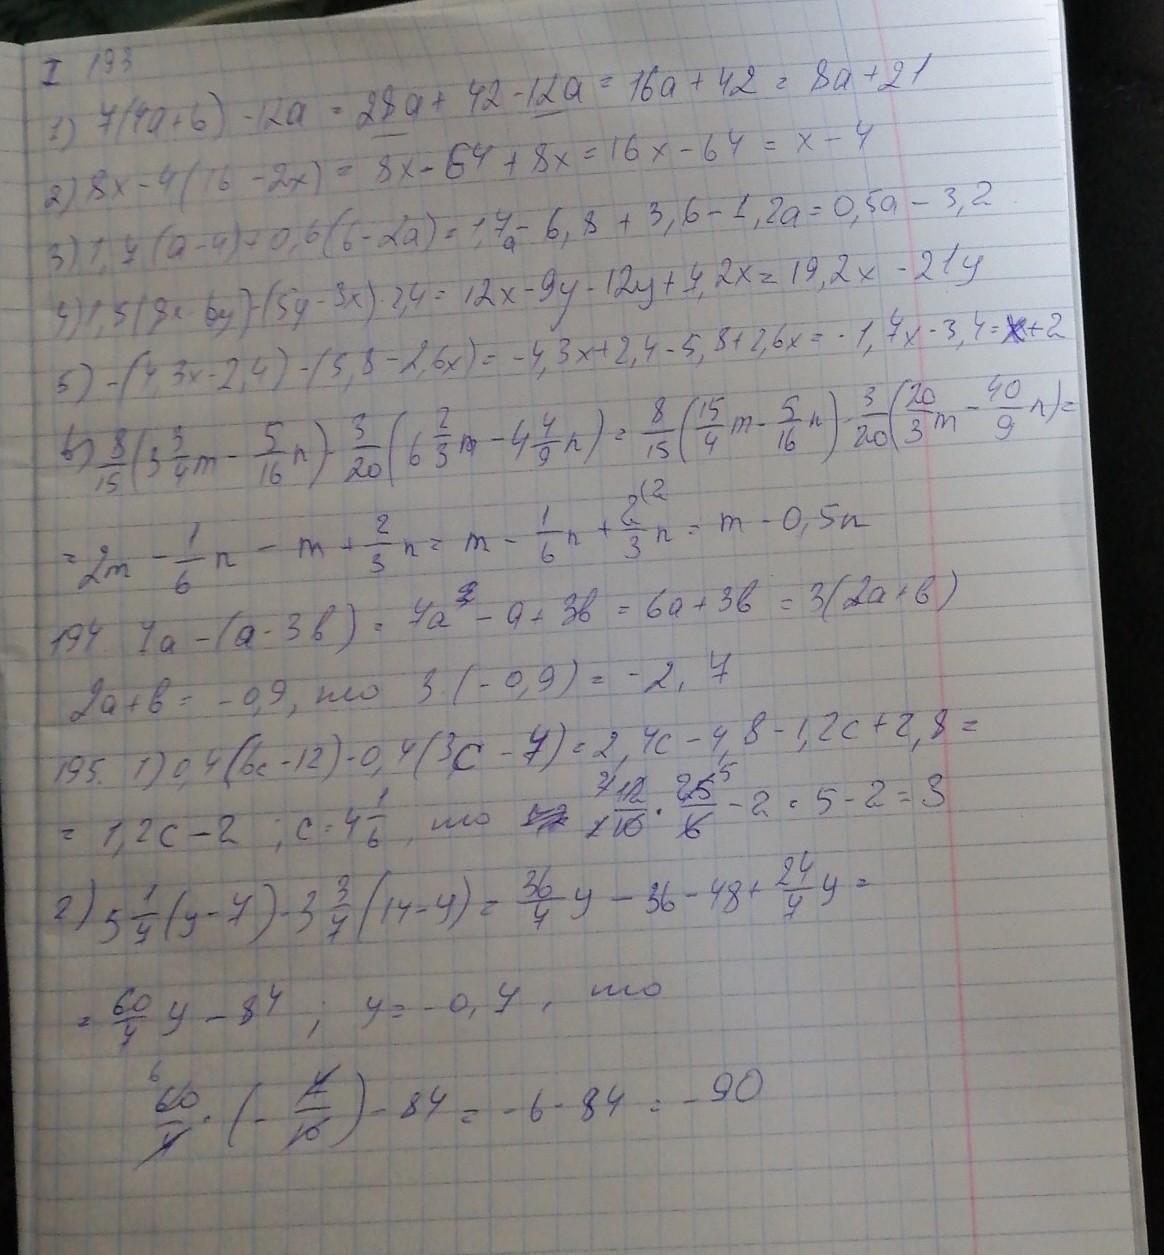 I 193
1) 7(4a+6) - 12a = 28a + 42 - 12a = 16a + 42 = 8a + 21
2) 8x - 4(16 - 2x) = 8x - 64 + 8x = 16x - 64 = x - 4
3) 1,7(a - 4) + 0,6(6 - 2a) = 1,7a - 6,8 + 3,6 - 1,2a = 0,5a - 3,2
4) 1,5(8x - 6y) - (5y - 3x) · 2,4 = 12x - 9y - 12y + 7,2x = 19,2x - 21y
5) -(4,3x - 2,4) - (5,8 - 2,6x) = -4,3x + 2,4 - 5,8 + 2,6x = -1,7x - 3,4 = x + 2
6) 8/15 (3 3/4 m - 5/16 n) - 3/20 (6 2/3 m - 4 4/9 n) = 8/15 (15/4 m - 5/16 n) - 3/20 (20/3 m - 40/9 n) =
= 2m - 1/6 n - m + 2/3 n = m - 1/6 n + 2/3 (2 n = m - 0,5n
194. 7a - (a - 3b) = 7a - a + 3b = 6a + 3b = 3(2a + b)
2a + b = -0,9, то 3 · (-0,9) = -2,7
195. 1) 0,4(6c - 12) - 0,4(3c - 7) = 2,4c - 4,8 - 1,2c + 2,8 =
= 1,2c - 2 ; c = 4 1/6, то 12/10 · 25/6 - 2 = 5 - 2 = 3
2) 5 1/7 (y - 7) - 3 3/7 (14 - y) = 36/7 y - 36 - 48 + 24/7 y =
= 60/7 y - 84 ; y = -0,7, то
60/7 · (- 7/10) - 84 = -6 - 84 = -90